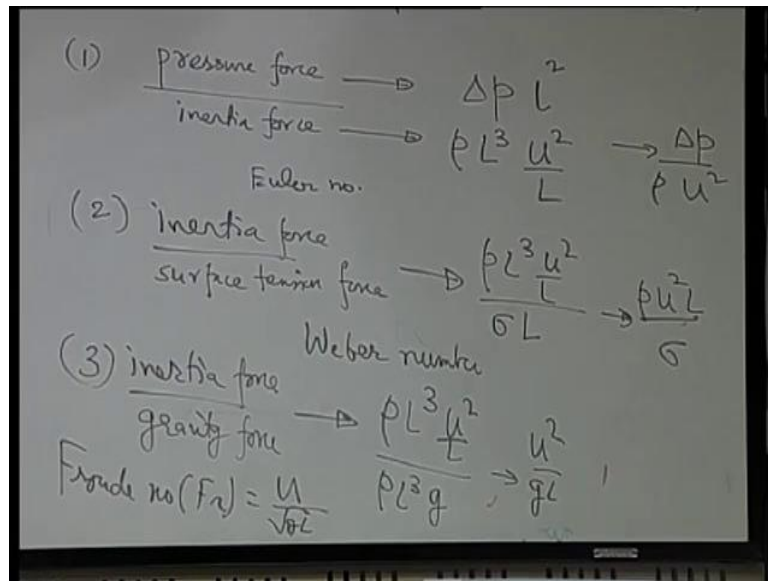 (1) pressure force → Δp L²
inertia force → ρL³ u²/L → Δp/ρu²
Euler no.
(2) inertia force / surface tension force → ρL³ u²/L / σL → ρu²L/σ
Weber number
(3) inertia force / gravity force → ρL³ u²/L / ρL³g → u²/gL
Froude no (Fr) = u/√gL